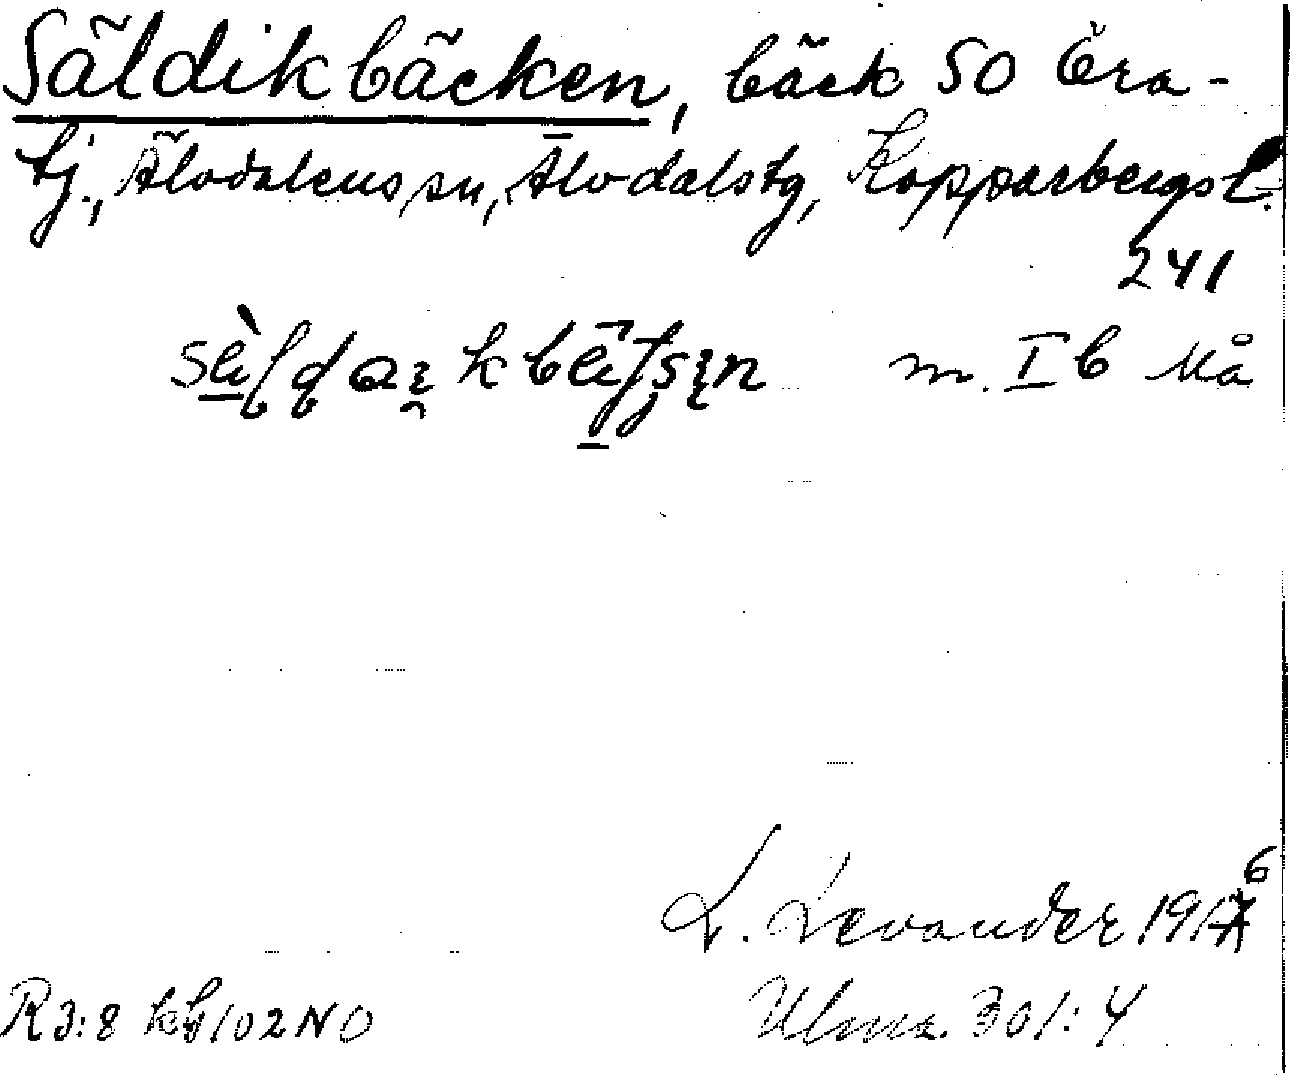 Säldikbäcken, bäck SO Öra-
tj., Älvdalens sn, Älvdalstg, Kopparbergs l.
241
m. I b Må
L. Levander 1916
Rj: 8 kbl 102 NO
Ulma. 301:4